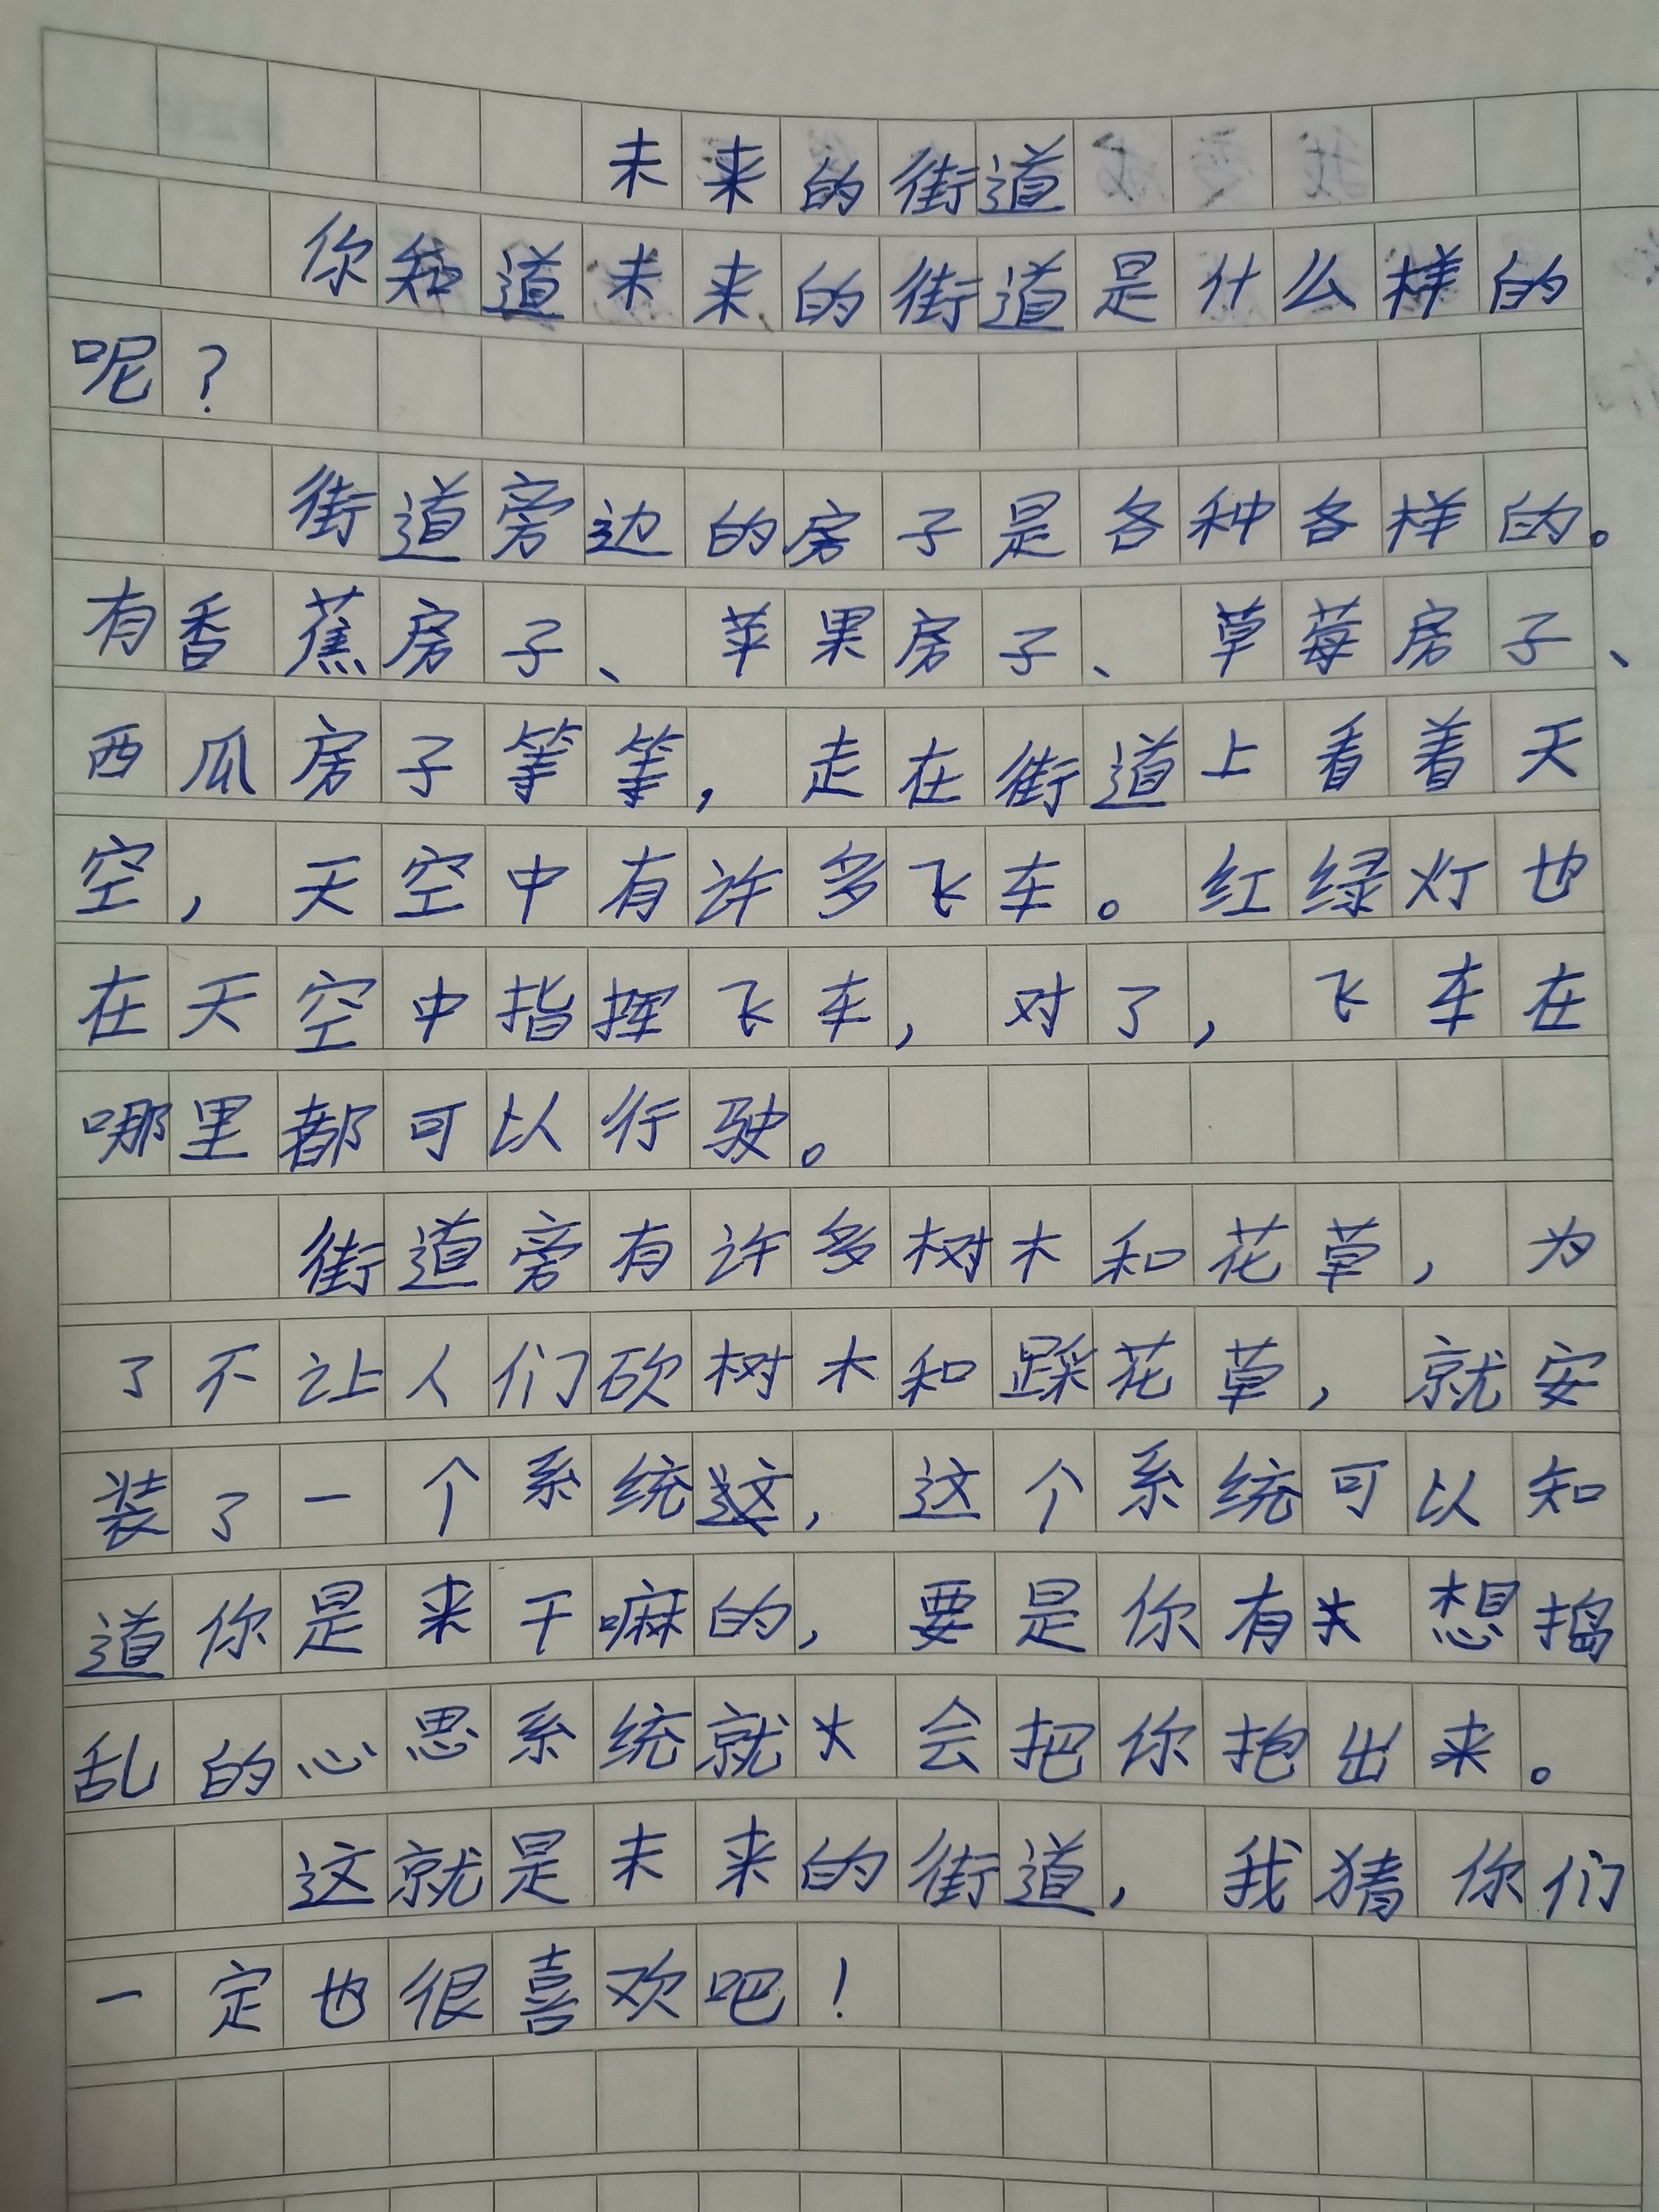 未来的街道
你知道未来的街道是什么样的
呢？
街道旁边的房子是各种各样的。
有香蕉房子、苹果房子、草莓房子、
西瓜房子等等，走在街道上看着天
空，天空中有许多飞车。红绿灯也
在天空中指挥飞车，对了，飞车在
哪里都可以行驶。
街道旁有许多树木和花草，为
了不让人们砍树木和踩花草，就安
装了一个系统，这个系统可以知
道你是来干嘛的，要是你有想捣
乱的心思系统就会把你抱出来。
这就是未来的街道，我猜你们
一定也很喜欢吧！